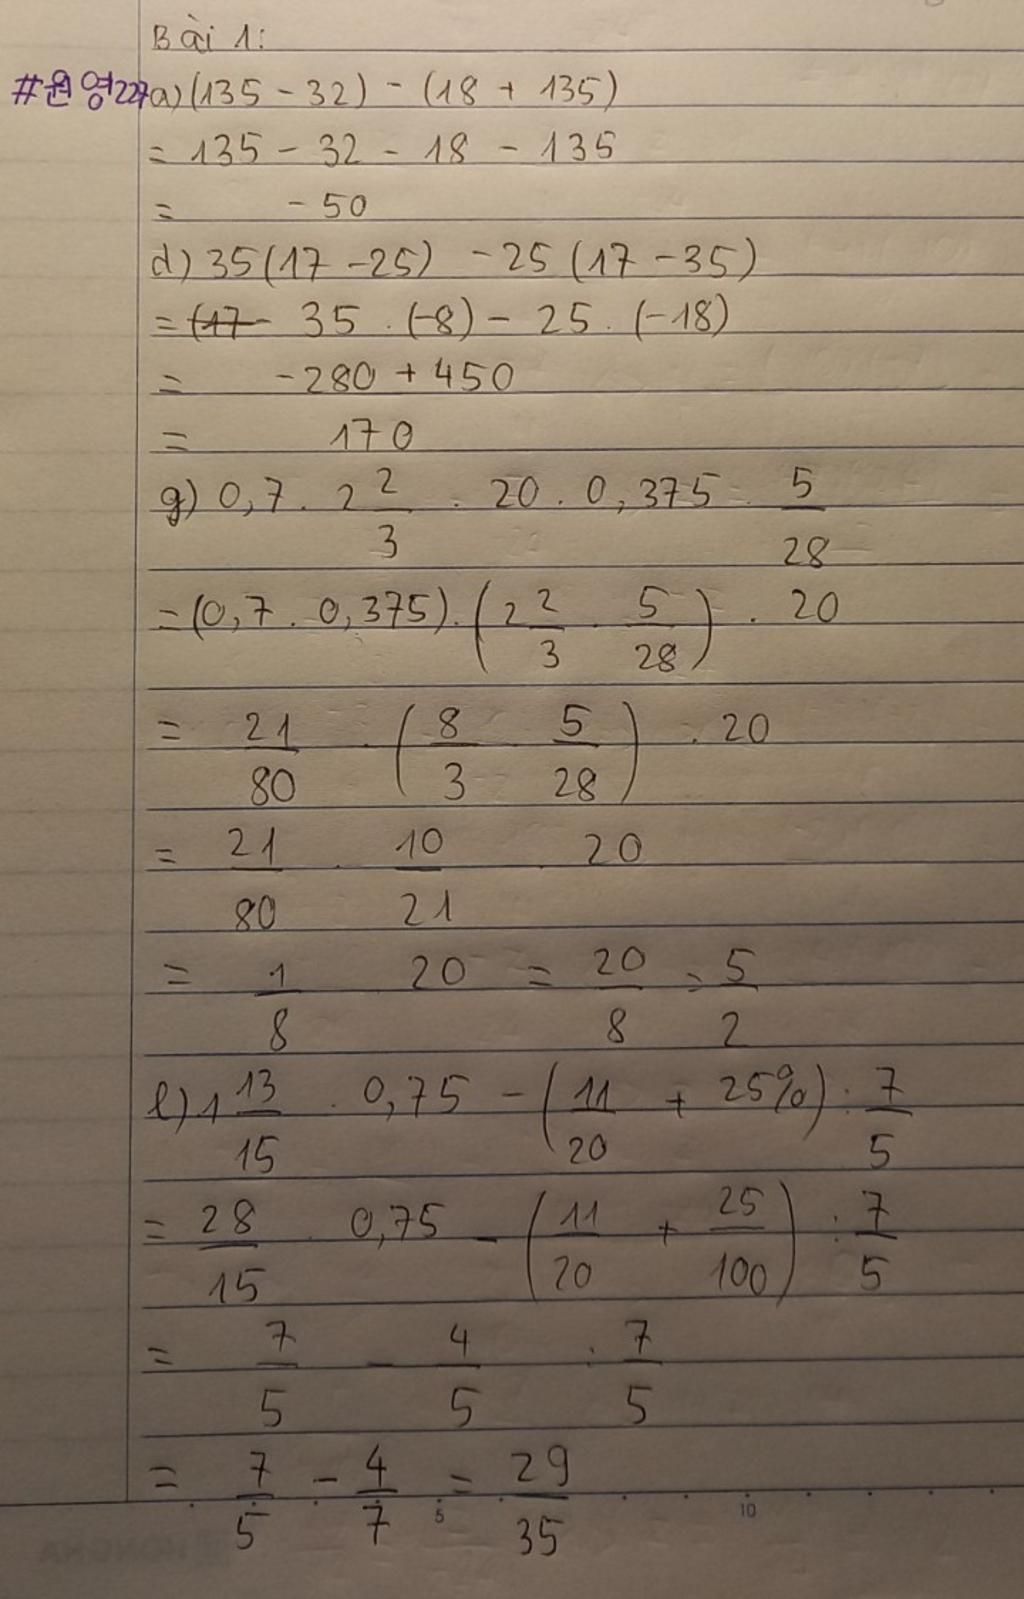 Bài 1:
#원영1227 a) (135 - 32) - (18 + 135)
= 135 - 32 - 18 - 135
= - 50
d) 35(17 - 25) - 25 (17 - 35)
= (17 - 35 . (-8) - 25 . (-18)
= -280 + 450
= 170
g) 0,7 . 2 2/3 . 20 . 0,375 . 5/28
= (0,7 . 0,375) . (2 2/3 . 5/28) . 20
= 21/80 . (8/3 . 5/28) . 20
= 21/80 . 10/21 . 20
= 1/8 20 = 20/8 = 5/2
l) 1 13/15 . 0,75 - (11/20 + 25%) : 7/5
= 28/15 . 0,75 - (11/20 + 25/100) : 7/5
= 7/5 - 4/5 : 7/5
= 7/5 - 4/7 = 29/35
5 10